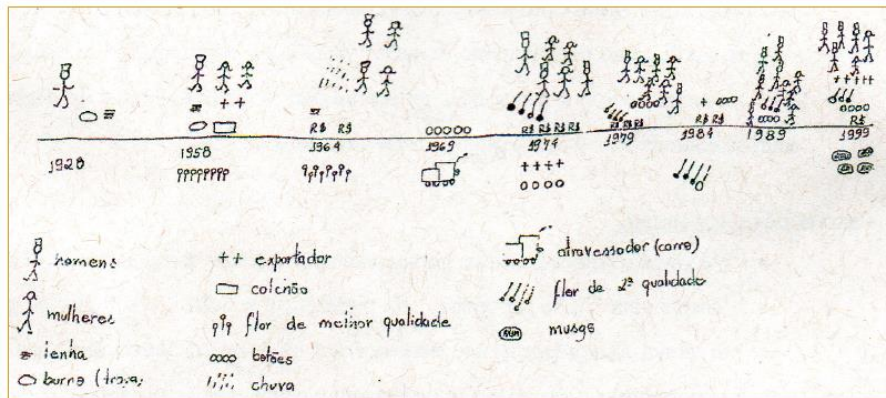 R$ R$ R$ R$ R$ R$
R$ R$ R$ R$ R$ R$ R$ R$
1928 1958 1964 1969 1974 1979 1984 1989 1999
homens
mulheres
lenha
burro (tropa)
++ exportador
colchão
flor de melhor qualidade
botões
chuva
atravessador (carro)
flor de 2ª qualidade
musgo